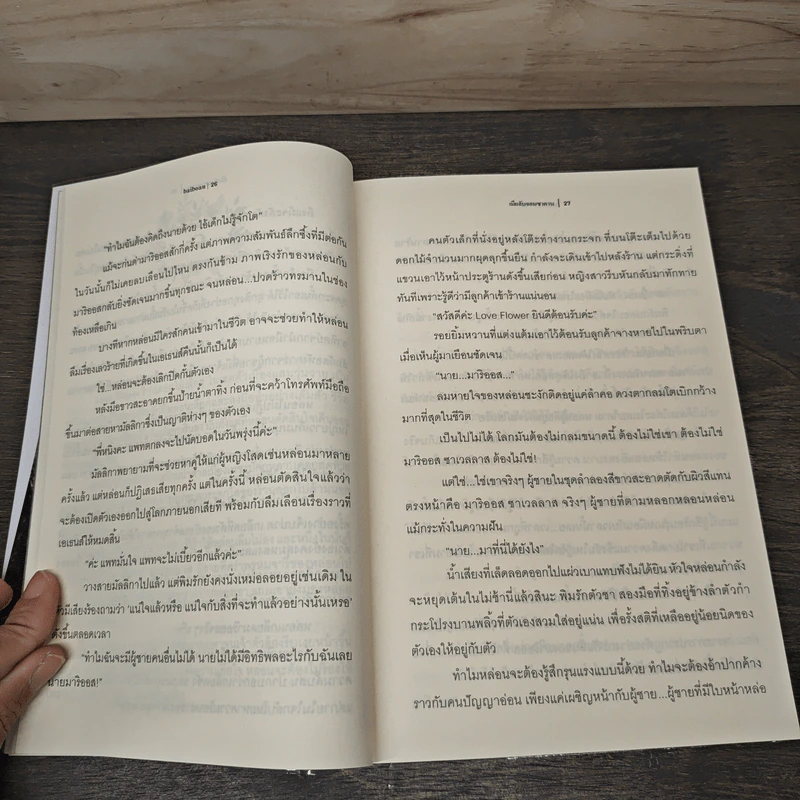 baiboua | 26
"ทำไมฉันต้องคิดถึงนายด้วย ไอ้เด็กไม่รู้จักโต"
แม้จะก่นด่ามาริออสสักกี่ครั้ง แต่ภาพความสัมพันธ์ลึกซึ้งที่มีต่อกัน
ในวันนั้นก็ไม่เคยลบเลือนไปไหน ตรงกันข้าม ภาพเริงรักของหล่อนกับ
มาริออสกลับยิ่งชัดเจนมากขึ้นทุกขณะ จนหล่อน...ปวดร้าวทรมานในช่อง
ท้องเหลือเกิน
บางทีหากหล่อนมีใครสักคนเข้ามาในชีวิต อาจจะช่วยทำให้หล่อน
ลืมเรื่องเลวร้ายที่เกิดขึ้นในเอเธนส์คืนนั้นก็เป็นได้
ใช่...หล่อนจะต้องเลิกปิดกั้นตัวเอง
หลังมือขาวสะอาดยกขึ้นป้ายน้ำตาทิ้ง ก่อนที่จะคว้าโทรศัพท์มือถือ
ขึ้นมาต่อสายหามัลลิกาซึ่งเป็นญาติห่างๆ ของตัวเอง
"พี่หนิงคะ แพทตกลงจะไปนัดบอดในวันพรุ่งนี้ค่ะ"
มัลลิกาพยายามที่จะช่วยหาคู่ให้แก่ผู้หญิงโสดเช่นหล่อนมาหลาย
ครั้งแล้ว แต่หล่อนก็ปฏิเสธเสียทุกครั้ง แต่ในครั้งนี้ หล่อนตัดสินใจแล้วว่า
จะต้องเปิดตัวเองออกไปสู่โลกภายนอกเสียที พร้อมกับลืมเลือนเรื่องราวที่
เอเธนส์ให้หมดสิ้น
"ค่ะ แพทมั่นใจ แพทจะไม่เบี้ยวอีกแล้วค่ะ"
วางสายมัลลิกาไปแล้ว แต่พิมรักยังคงนั่งเหม่อลอยอยู่เช่นเดิม ใน
หัวมีเสียงร้องถามว่า 'แน่ใจแล้วหรือ แน่ใจกับสิ่งที่จะทำแล้วอย่างนั้นเหรอ'
ดังขึ้นตลอดเวลา
"ทำไมฉันจะมีผู้ชายคนอื่นไม่ได้ นายไม่ได้มีอิทธิพลอะไรกับฉันเลย
นายมาริออส!"
เมียลับจอมซาตาน | 27
คนตัวเล็กที่นั่งอยู่หลังโต๊ะทำงานกระจก ที่บนโต๊ะเต็มไปด้วย
ดอกไม้จำนวนมากผุดลุกขึ้นยืน กำลังจะเดินเข้าไปหลังร้าน แต่กระดิ่งที่
แขวนเอาไว้หน้าประตูร้านดังขึ้นเสียก่อน หญิงสาวรีบหันกลับมาทักทาย
ทันทีเพราะรู้ดีว่ามีลูกค้าเข้าร้านแน่นอน
"สวัสดีค่ะ Love Flower ยินดีต้อนรับค่ะ"
รอยยิ้มหวานที่แต่งแต้มเอาไว้ต้อนรับลูกค้าจางหายไปในพริบตา
เมื่อเห็นผู้มาเยือนชัดเจน
"นาย...มาริออส..."
ลมหายใจของหล่อนชะงักติดอยู่แค่ลำคอ ดวงตากลมโตเบิกกว้าง
มากที่สุดในชีวิต
เป็นไปไม่ได้ โลกมันต้องไม่กลมขนาดนี้ ต้องไม่ใช่เขา ต้องไม่ใช่
มาริออส ซาเวลลาส ต้องไม่ใช่!
แต่ใช่...ใช่เขาจริงๆ ผู้ชายในชุดลำลองสีขาวสะอาดตัดกับผิวสีแทน
ตรงหน้าคือ มาริออส ซาเวลลาส จริงๆ ผู้ชายที่ตามหลอกหลอนหล่อน
แม้กระทั่งในความฝัน
"นาย...มาที่นี่ได้ยังไง"
น้ำเสียงที่เล็ดลอดออกไปแผ่วเบาแทบฟังไม่ได้ยิน หัวใจหล่อนกำลัง
จะหยุดเต้นในไม่ช้านี้แล้วสินะ พิมรักตัวชา สองมือที่ทิ้งอยู่ข้างลำตัวกำ
กระโปรงบานพลิ้วที่ตัวเองสวมใส่อยู่แน่น เพื่อรั้งสติที่เหลืออยู่น้อยนิดของ
ตัวเองให้อยู่กับตัว
ทำไมหล่อนจะต้องรู้สึกรุนแรงแบบนี้ด้วย ทำไมจะต้องอ้าปากค้าง
ราวกับคนปัญญาอ่อน เพียงแค่เผชิญหน้ากับผู้ชาย...ผู้ชายที่มีใบหน้าหล่อ